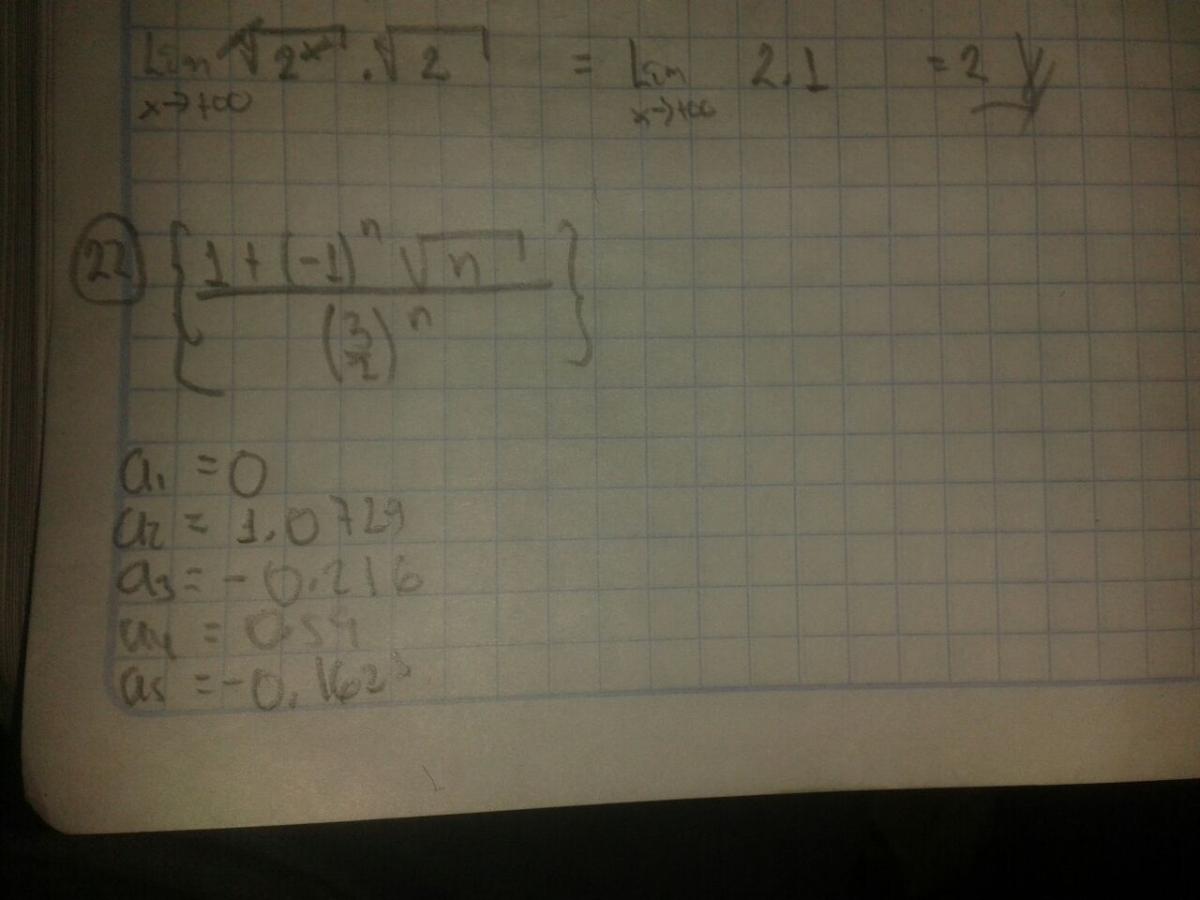 Lim √2ˣ . √2 = Lim 2.1 = 2
x→+∞ x→+∞
22 { 1 + (-1)ⁿ √n }
(3/2)ⁿ
a₁ = 0
a₂ = 1.0729
a₃ = -0.216
a₄ = 0.59
a₅ = -0.162